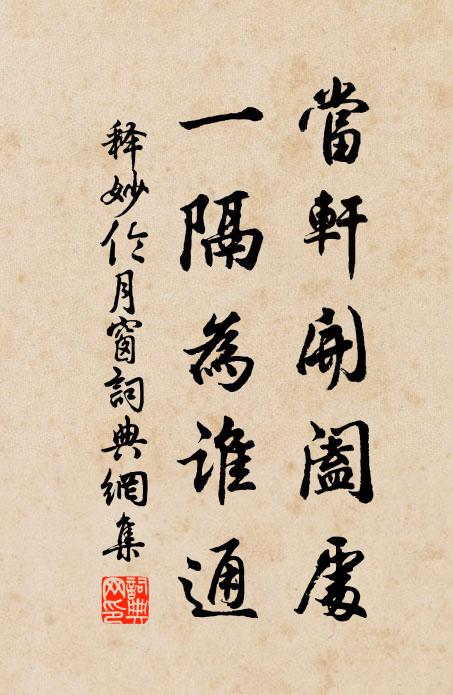 當軒開闔處
一隔為誰通
释妙伦月窗詞典網集
詞典网印